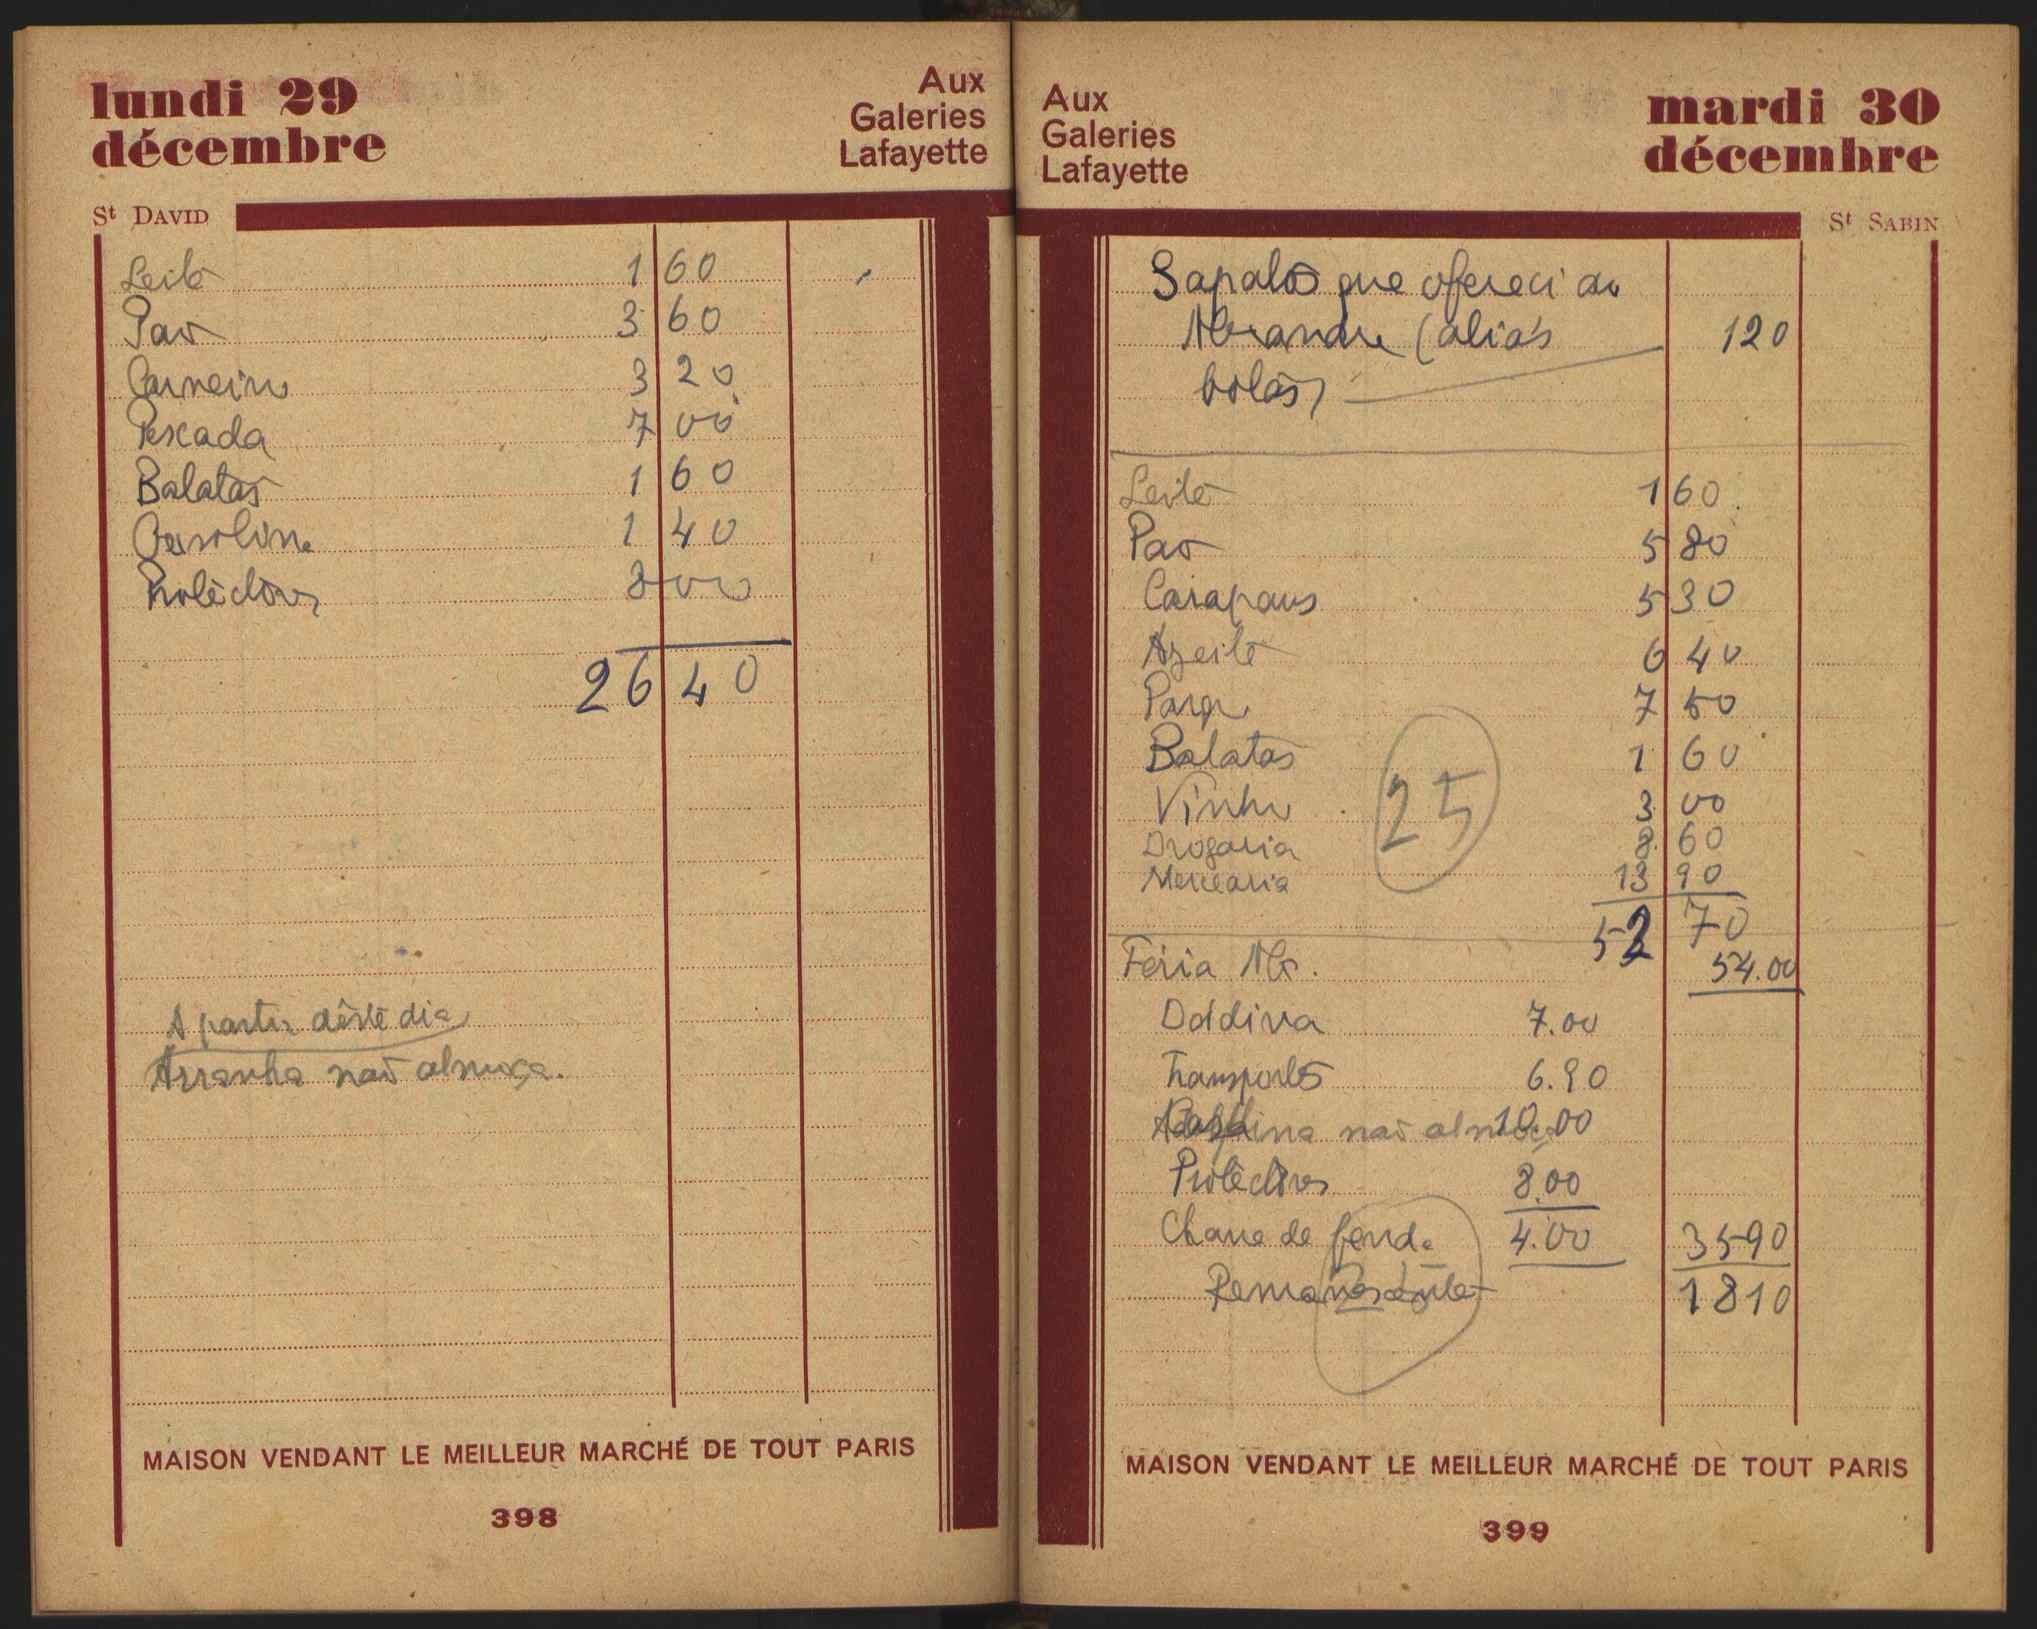 lundi 29
décembre
Aux
Galeries
Lafayette
St DAVID
Leite 1 60
Pão 3 60
Carneiro 3 20
Pescada 7 00
Batatas 1 60
Gasolina 1 40
Protèctores 8 00
26 40
A partir dêste dia
Arranha não almoça.
MAISON VENDANT LE MEILLEUR MARCHÉ DE TOUT PARIS
398
Aux
Galeries
Lafayette
mardi 30
décembre
St SABIN
Sapatos que ofereci ao
Alexandre (aliás 120
botas)
Leite 1 60
Pão 5 80
Carapaus 5 30
Azeite 6 40
7 50
Batatas 1 60
Vinho 3 00
25
Drogaria 8 60
Mercearia 13 90
52 70
Féria 54.00
Dádiva 7.00
Transportes 6.90
não 10.00
Protèctores 8.00
Chave de fenda 4.00 35 90
Remanescente 18 10
MAISON VENDANT LE MEILLEUR MARCHÉ DE TOUT PARIS
399